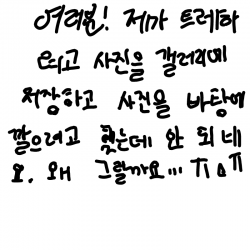 여려분! 저가 트레하
려고 사진을 갤러리에
저장하고 사진을 바탕에
깔으려고 했는데 안 되네
요. 왜 그럴까요... ㅠㅅㅠ